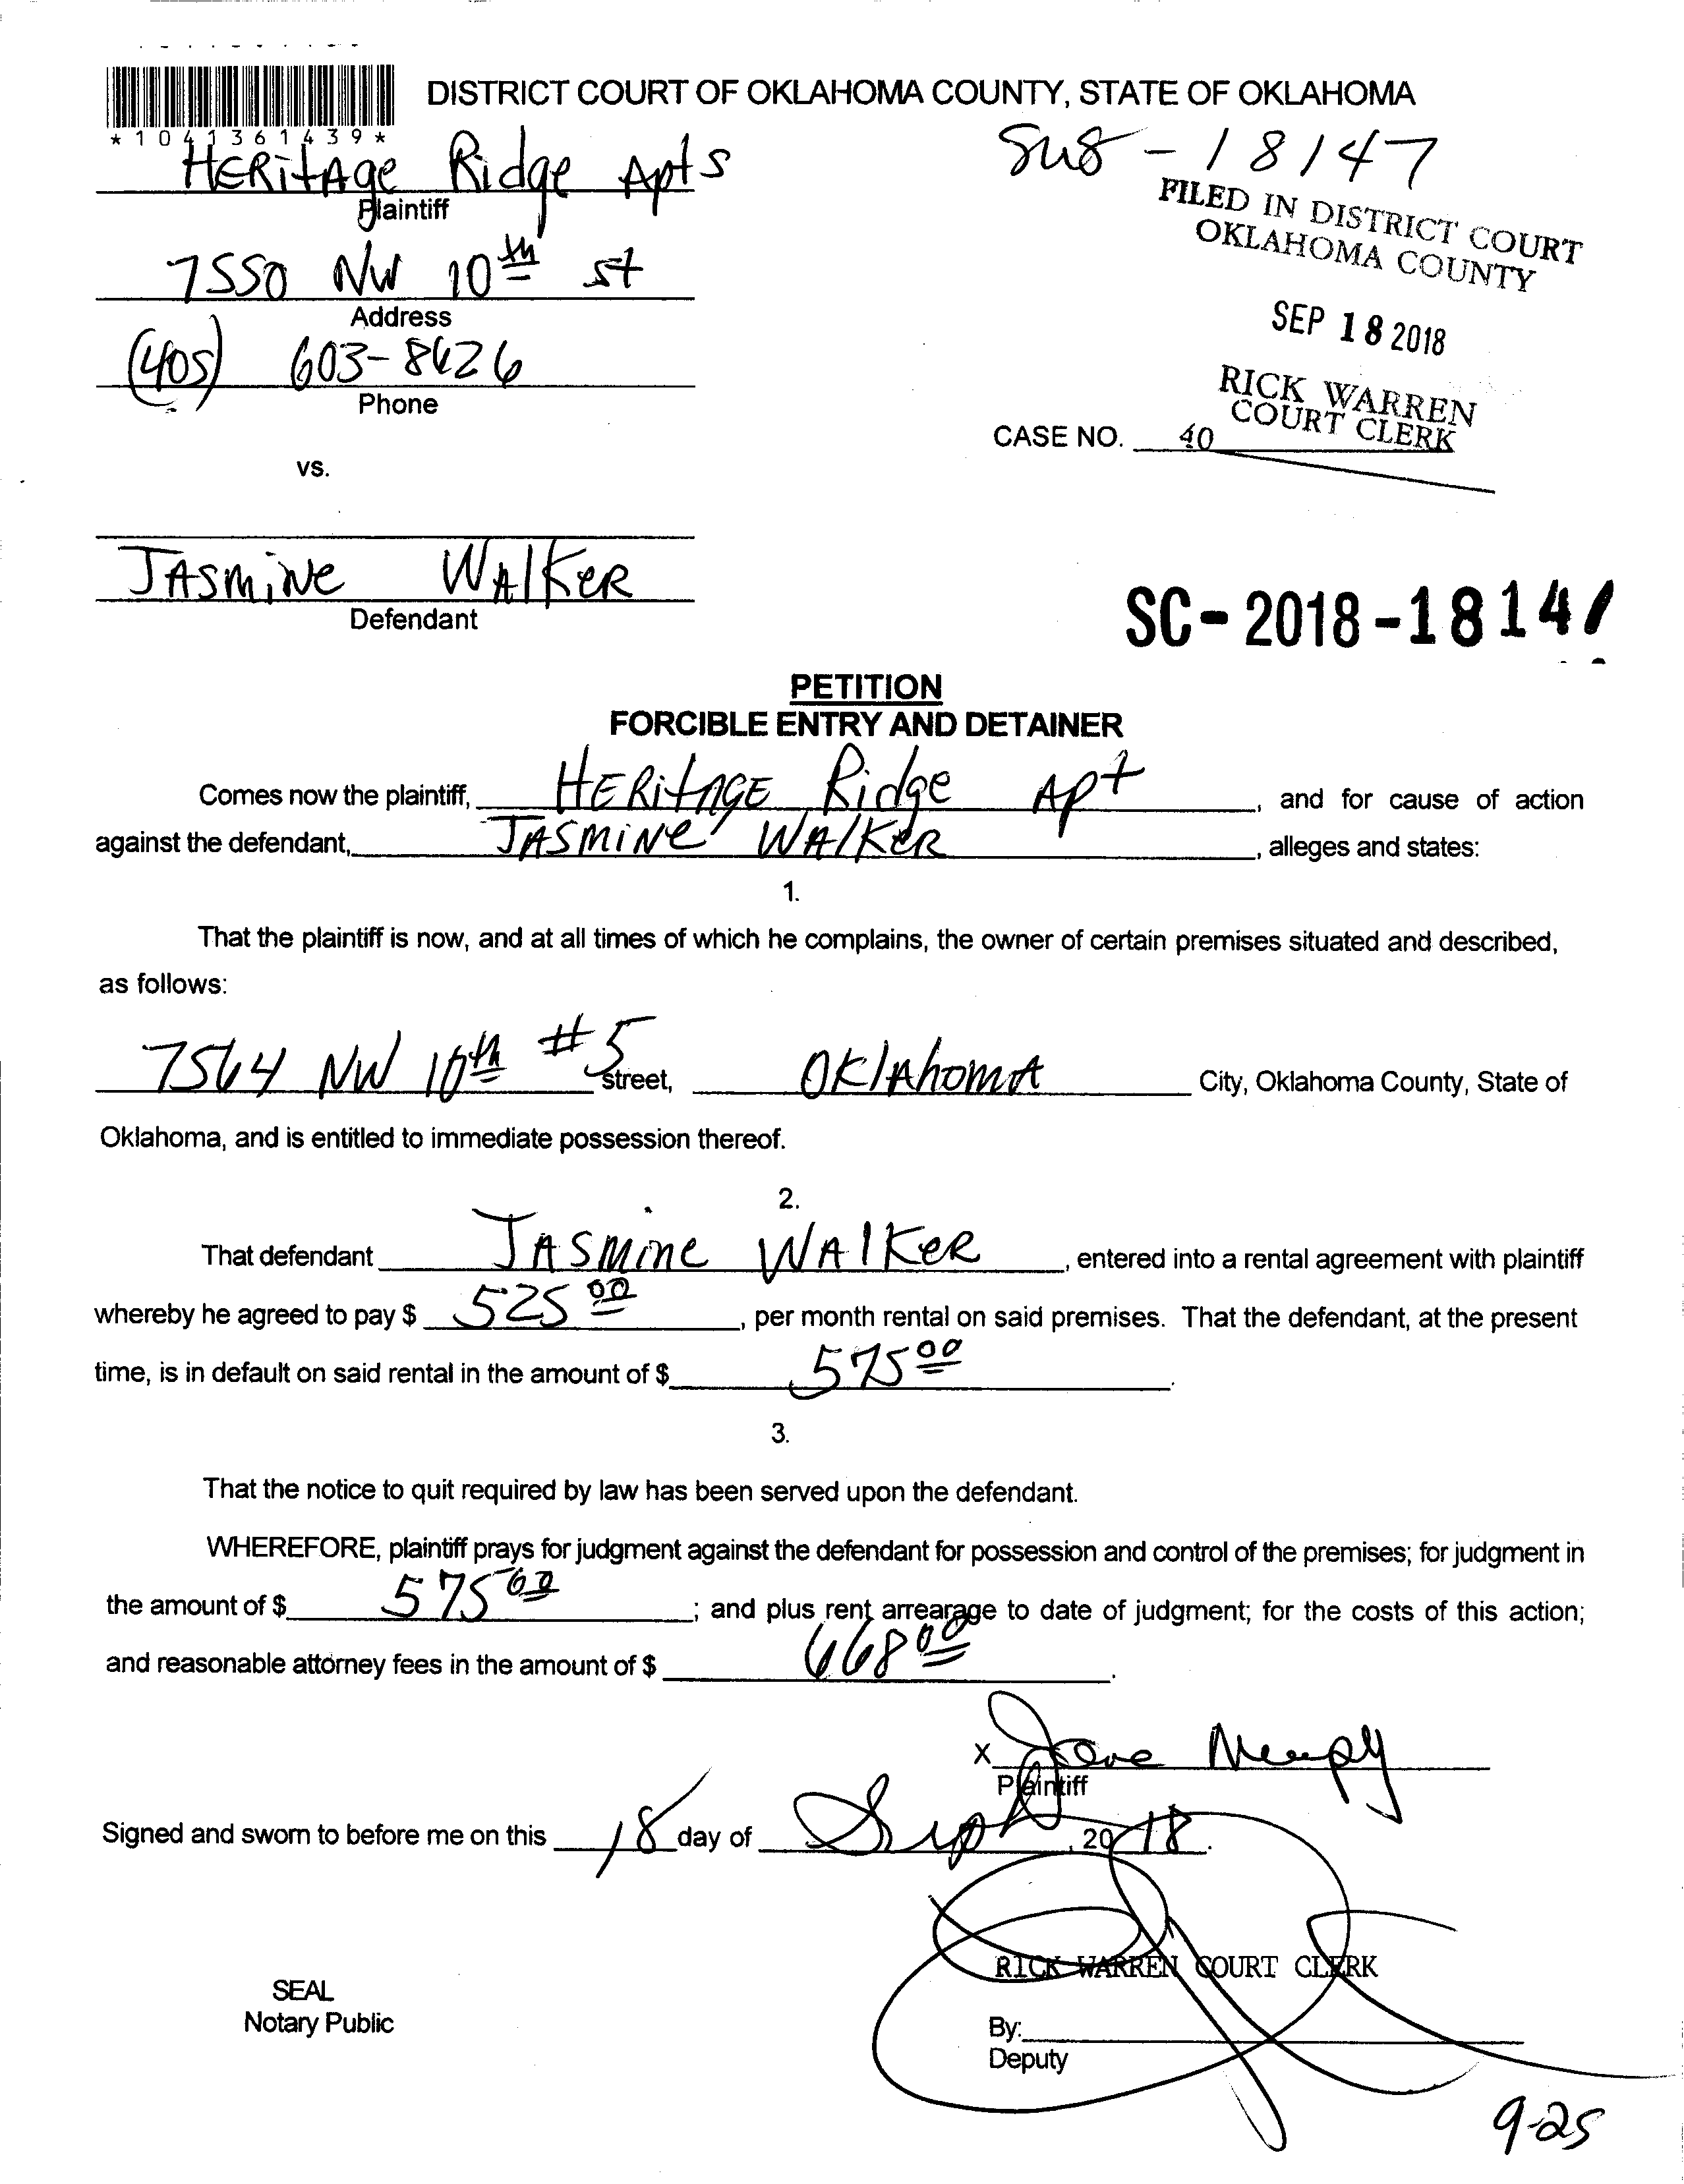 DISTRICT COURT OF OKLAHOMA COUNTY, STATE OF OKLAHOMA
*1041361439*
HERitAge Ridge Apts
Plaintiff
18147
FILED IN DISTRICT COURT
OKLAHOMA COUNTY
7550 NW 10th st
Address
SEP 18 2018
(405) 603-8426
Phone
RICK WARREN
COURT CLERK
CASE NO. 40
vs.
JASMiNe WAlKeR
Defendant
SC-2018-1814
PETITION
FORCIBLE ENTRY AND DETAINER
Comes now the plaintiff, HERitAGE Ridge Apt, and for cause of action
against the defendant, JASMiNe WAlKeR, alleges and states:
1.
That the plaintiff is now, and at all times of which he complains, the owner of certain premises situated and described,
as follows:
7564 NW 10th #5 street, OKlAhomA City, Oklahoma County, State of
Oklahoma, and is entitled to immediate possession thereof.
2.
That defendant JASMine WAlKeR, entered into a rental agreement with plaintiff
whereby he agreed to pay $ 525 00, per month rental on said premises. That the defendant, at the present
time, is in default on said rental in the amount of $ 575 00.
3.
That the notice to quit required by law has been served upon the defendant.
WHEREFORE, plaintiff prays for judgment against the defendant for possession and control of the premises; for judgment in
the amount of $ 575 00; and plus rent arrearage to date of judgment; for the costs of this action;
and reasonable attorney fees in the amount of $ 668 00.
X
Plaintiff
Signed and sworn to before me on this 18 day of Sept, 2018.
RICK WARREN COURT CLERK
SEAL
Notary Public
By:
Deputy
9-25